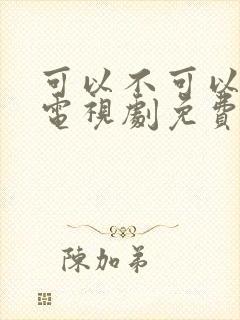 可以不可以
電視劇免費
陳加弟